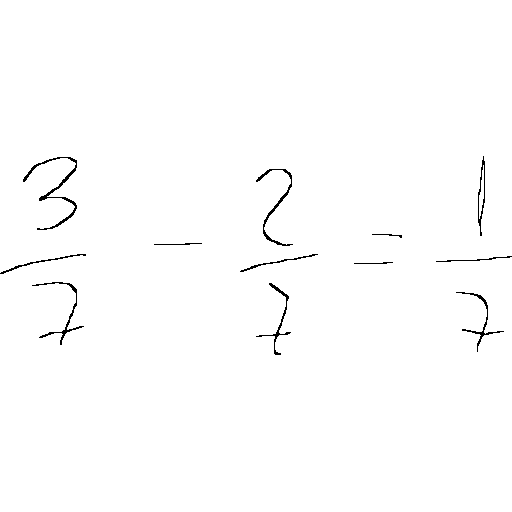 3/7 - 2/7 = 1/7